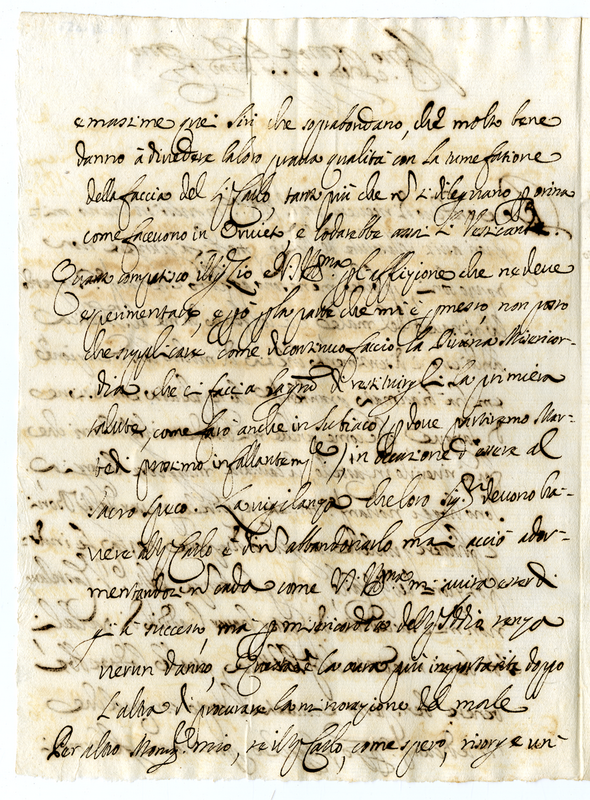 e massime quei Siri che soprabondano, che molto bene
danno à divedere la loro prava qualità con la tumefatione
della faccia del Sr Carlo, tanto più che nō si dileguano p orina
come facevono in Orvieto, e lodarebbe assai li vesicanti.
Quanto compatisco il Sr Zio, e V.S. Illma pl'afflizione che ne deve
esperimentare, e pò pla parte che mi è, non posso
che supplicare come di continuo faccio la Divina Misericor-
dia che ci faccia la grā di restituirgli la primiera
salute, come farò anche in Subiaco (p dove partiremo Mar-
tedi prossimo infallantemte) in occasione d'essere al
Sacro Speco. La vigilanza che loro Sigri devono ha-
vere del Sr Carlo è di nō abbandonarlo mai, acciò ador-
mentandosi nō cada come V.S. Illma mi avvisa essere di
già successo, ma p misericordia del Sr Iddio senza
verun danno, e questa è la cura più importante doppo
l'altra di procurare la minorazione del male
Per altro Monsre mio, se il Sr Carlo, come spero, risorge un-